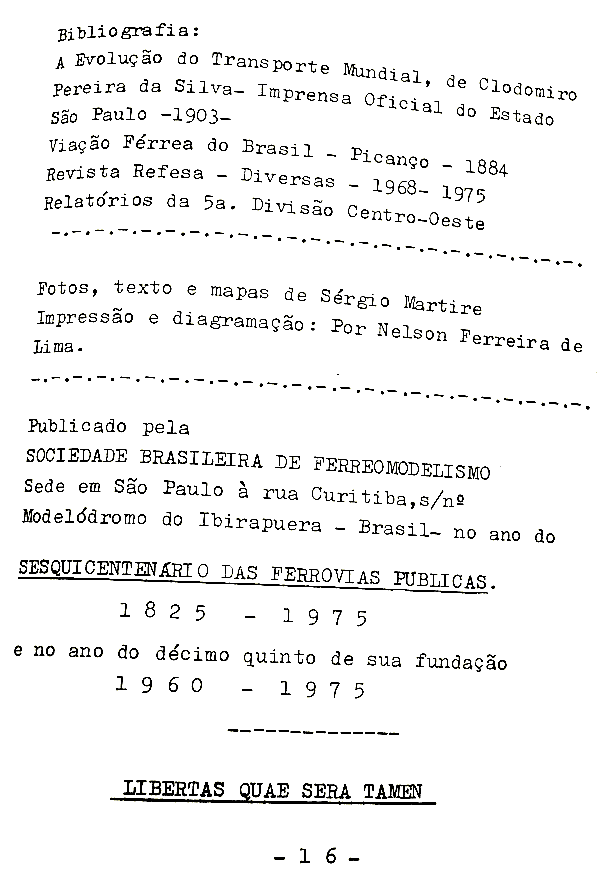 Bibliografia:
A Evolução do Transporte Mundial, de Clodomiro
Pereira da Silva- Imprensa Oficial do Estado
São Paulo -1903-
Viação Férrea do Brasil - Picanço - 1884
Revista Refesa - Diversas - 1968- 1975
Relatórios da 5a. Divisão Centro-Oeste
-.-.-.-.-.-.-.-.-.-.-.-.-.-.-.-.-.-.-.-.-.-.
Fotos, texto e mapas de Sérgio Martire
Impressão e diagramação: Por Nelson Ferreira de
Lima.
-.-.-.-.-.-.-.-.-.-.-.-.-.-.-.-.-.-.-.-.-.-.-.
Publicado pela
SOCIEDADE BRASILEIRA DE FERREOMODELISMO
Sede em São Paulo à rua Curitiba,s/nº
Modelódromo do Ibirapuera - Brasil- no ano do
SESQUICENTENÁRIO DAS FERROVIAS PUBLICAS.
1 8 2 5 - 1 9 7 5
e no ano do décimo quinto de sua fundação
1 9 6 0 - 1 9 7 5
--------------
LIBERTAS QUAE SERA TAMEN
- 1 6 -